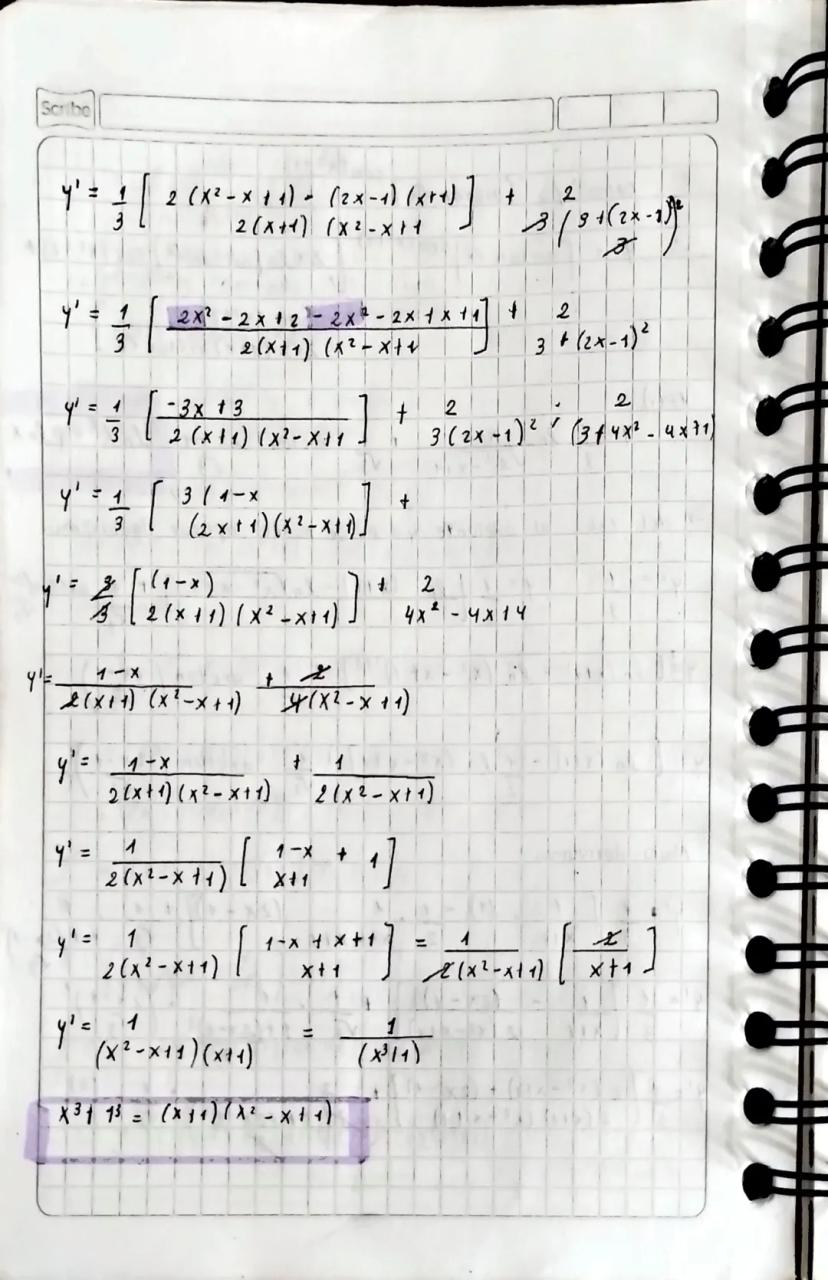 Scribe
y' = 1/3 [ 2(x² - x + 1) - (2x-1)(x+1) / 2(x+1)(x² - x+1 ] + 2 / 3(3+(2x-1)² / 3)
y' = 1/3 [ 2x² - 2x + 2 - 2x² - 2x + x + 1 / 2(x+1)(x² - x+1 ] + 2 / 3 + (2x-1)²
y' = 1/3 [ -3x + 3 / 2(x+1)(x² - x+1 ] + 2 / 3(2x-1)² ; 2 / (3+4x² - 4x+1)
y' = 1/3 [ 3(1-x / (2x+1)(x² - x+1) ] +
y' = 3/3 [ (1-x) / 2(x+1)(x² - x+1) ] + 2 / 4x² - 4x+4
y' = 1-x / 2(x+1)(x² - x+1) + 2 / 4(x² - x+1)
y' = 1-x / 2(x+1)(x² - x+1) + 1 / 2(x² - x+1)
y' = 1 / 2(x² - x+1) [ 1-x / x+1 + 1 ]
y' = 1 / 2(x² - x+1) [ 1-x + x+1 / x+1 ] = 1 / 2(x² - x+1) [ 2 / x+1 ]
y' = 1 / (x² - x+1)(x+1) = 1 / (x³+1)
x³ + 1³ = (x+1)(x² - x+1)